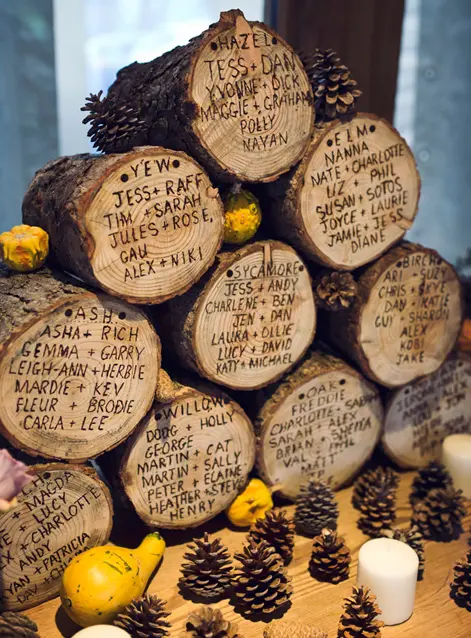 HAZEL
JESS + DAN
YVONNE + DICK
MAGGIE + GRAHAM
POLLY
NAYAN
ELM
NANNA
NATE + CHARLOTTE
LIZ + PHIL
SUSAN + SOTOS
JOYCE + LAURIE
JAMIE + JESS
DIANE
YEW
JESS + RAFF
TIM + SARAH
JULES + ROSE
GAU
ALEX + NIKI
SYCAMORE
JESS + ANDY
CHARLENE + BEN
JEN + DAN
LAURA + OLLIE
LUCY + DAVID
KATY + MICHAEL
BIRCH
ARI + SUZY
CHRIS + SKYE
DAN + KATIE
GUI + SHARON
ALEX
KOBI
JAKE
ASH
ASHA + RICH
GEMMA + GARRY
LEIGH-ANN + HERBIE
MARDIE + KEV
FLEUR + BRODIE
CARLA + LEE
WILLOW
DOUG + HOLLY
GEORGE
MARTIN + CAT
MARTIN + SALLY
PETER + ELAINE
HEATHER + STEVE
HENRY
OAK
FREDDIE
CHARLOTTE +
SARAH + ALEX
SEAN +
BRIAN +
VAL + PHIL
MATT
MAGDA
LUCY
+ CHARLOTTE
YAN + ANDY
+ PATRICIA
DAVID +